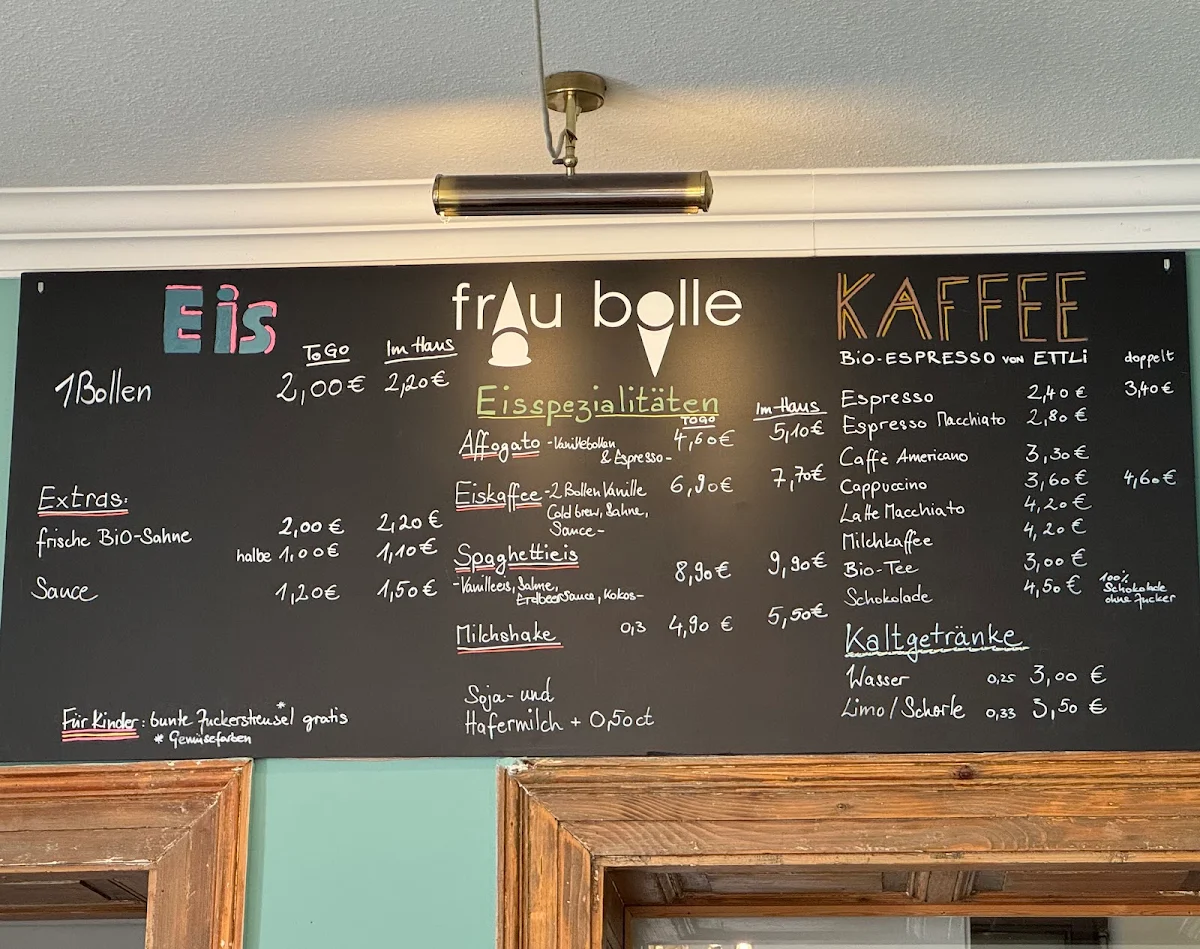 Eis
To Go Im Haus
1 Bollen 2,00 € 2,20 €
Extras:
frische Bio-Sahne 2,00 € 2,20 €
halbe 1,00 € 1,10 €
Sauce 1,20 € 1,50 €
Für Kinder: bunte Zuckerstreusel* gratis
* Gemüsefarben
frau bolle
Eisspezialitäten
TOGO Im Haus
Affogato - Vanillebollen 4,60 € 5,10 €
& Espresso -
Eiskaffee - 2 Bollen Vanille 6,90 € 7,70 €
Cold brew, Sahne,
Sauce -
Spaghettieis 8,90 € 9,90 €
- Vanilleeis, Sahne,
ErdbeerSauce, Kokos -
Milchshake 0,3 4,90 € 5,50 €
Soja- und
Hafermilch + 0,50 ct
KAFFEE
BiO-ESPRESSO von ETTLi doppelt
Espresso 2,40 € 3,40 €
Espresso Macchiato 2,80 €
Caffè Americano 3,30 €
Cappuccino 3,60 € 4,60 €
Latte Macchiato 4,20 €
Milchkaffee 4,20 €
Bio-Tee 3,00 €
Schokolade 4,50 € 100%
Schokolade
ohne Zucker
Kaltgetränke
Wasser 0,25 3,00 €
Limo / Schorle 0,33 3,50 €